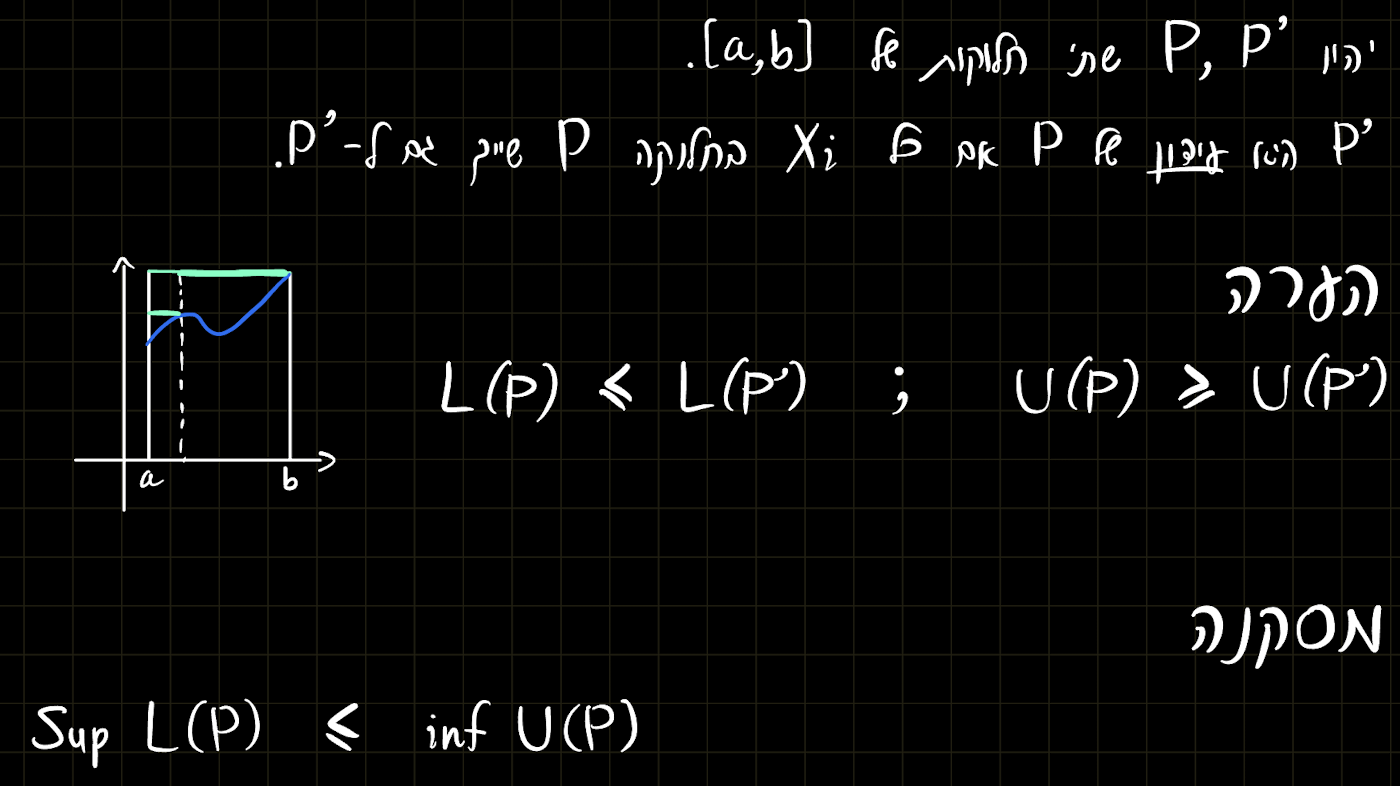 יהיו P, P' שתי חלוקות של [a,b].
P' היא עידון של P אם כל Xi בחלוקה P שייך גם ל-P'.
הערה
L(P) ⩽ L(P') ; U(P) ⩾ U(P')
a b
מסקנה
Sup L(P) ⩽ inf U(P)